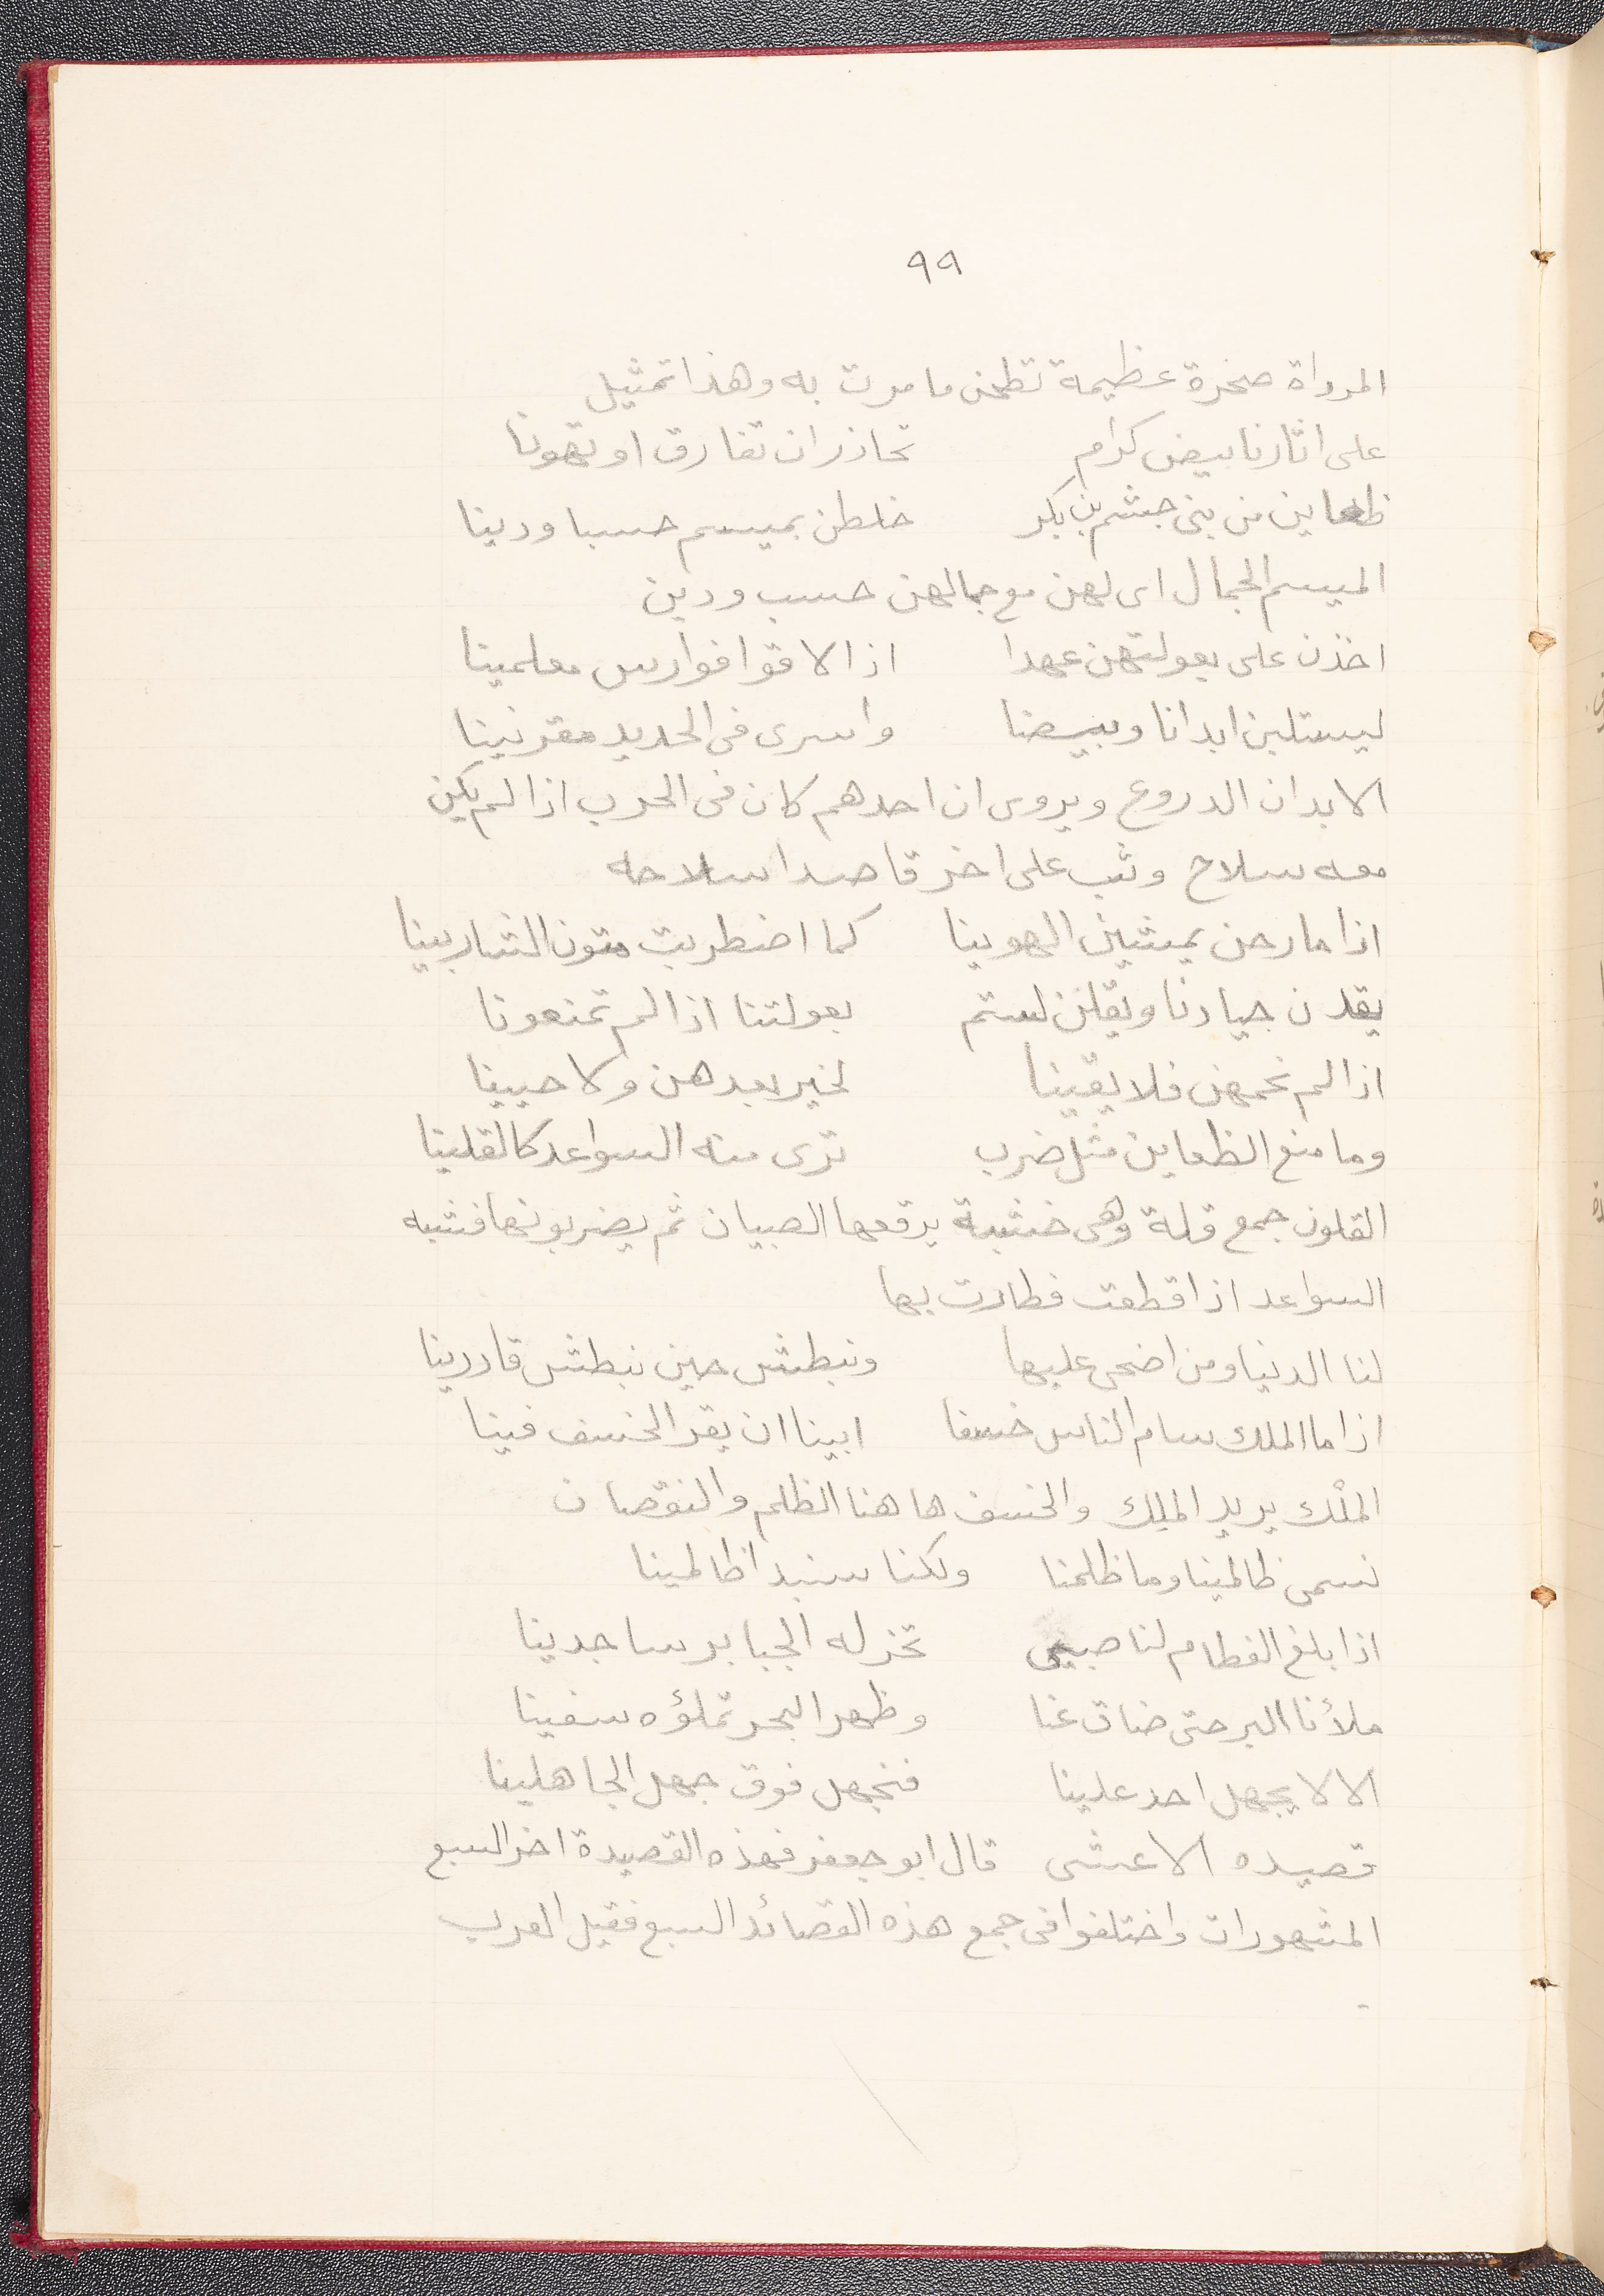 ٩٩
المرداة صخرة عظيمة تطحن ما مرت به وهذا تمثيل
على اثارنا بيض كرام تحاذر ان تفارق او تهونا
ظعاين من بنى جشم بن بكر خلطن بميسم حسبا ودينا
الميسم الجمال اى لهن مع جمالهن حسب ودين
اخذن على بعولتهن عهدا اذا لاقوا فوارس معلمينا
ليستلبن ابدانا وبيضا واسرى فى الحديد مقرنينا
الابدان الدروع ويروى ان احدهم كان فى الحرب اذا لم يكن
معه سلاح وثب على اخر قاصدا سلاحه
اذا ما رحن يمشين الهوينا كما اضطربت متون الشاربينا
يقدن جيادنا ويقلن لستم بعولتنا اذا لم تمنعونا
اذا لم نحمهن فلا بقينا لخير بعدهن ولا حيينا
وما منع الظعاين مثل ضرب ترى منه السواعد كالقلينا
القلون جمع قلة وهى خشبة يرقعها الصبيان ثم يضربونها فشبه
السواعد اذا قطعت فطارت بها
لنا الدنيا ومن اضحى عليها ونبطش حين نبطش قادرينا
اذا ما الملك سام الناس خسفا ابينا ان يقر الخسف فينا
الملْك يريد الملِك والخسف هاهنا الظلم والنقصان
نسمى ظالمينا وما ظلمنا ولكنا سنبدا ظالمينا
اذا بلغ الفطام لنا صبى تخر له الجبابر ساجدينا
ملأنا البر حتى ضاق عنا وظهر البحر تملؤه سفينا
الا لا يجهل احد علينا فنجهل فوق جهل الجاهلينا
قصيده الاعشى قال ابو جعفر فهذه القصيدة اخر السبع
المشهورات واختلفوا فى جمع هذه القصائد السبع فقيل العرب